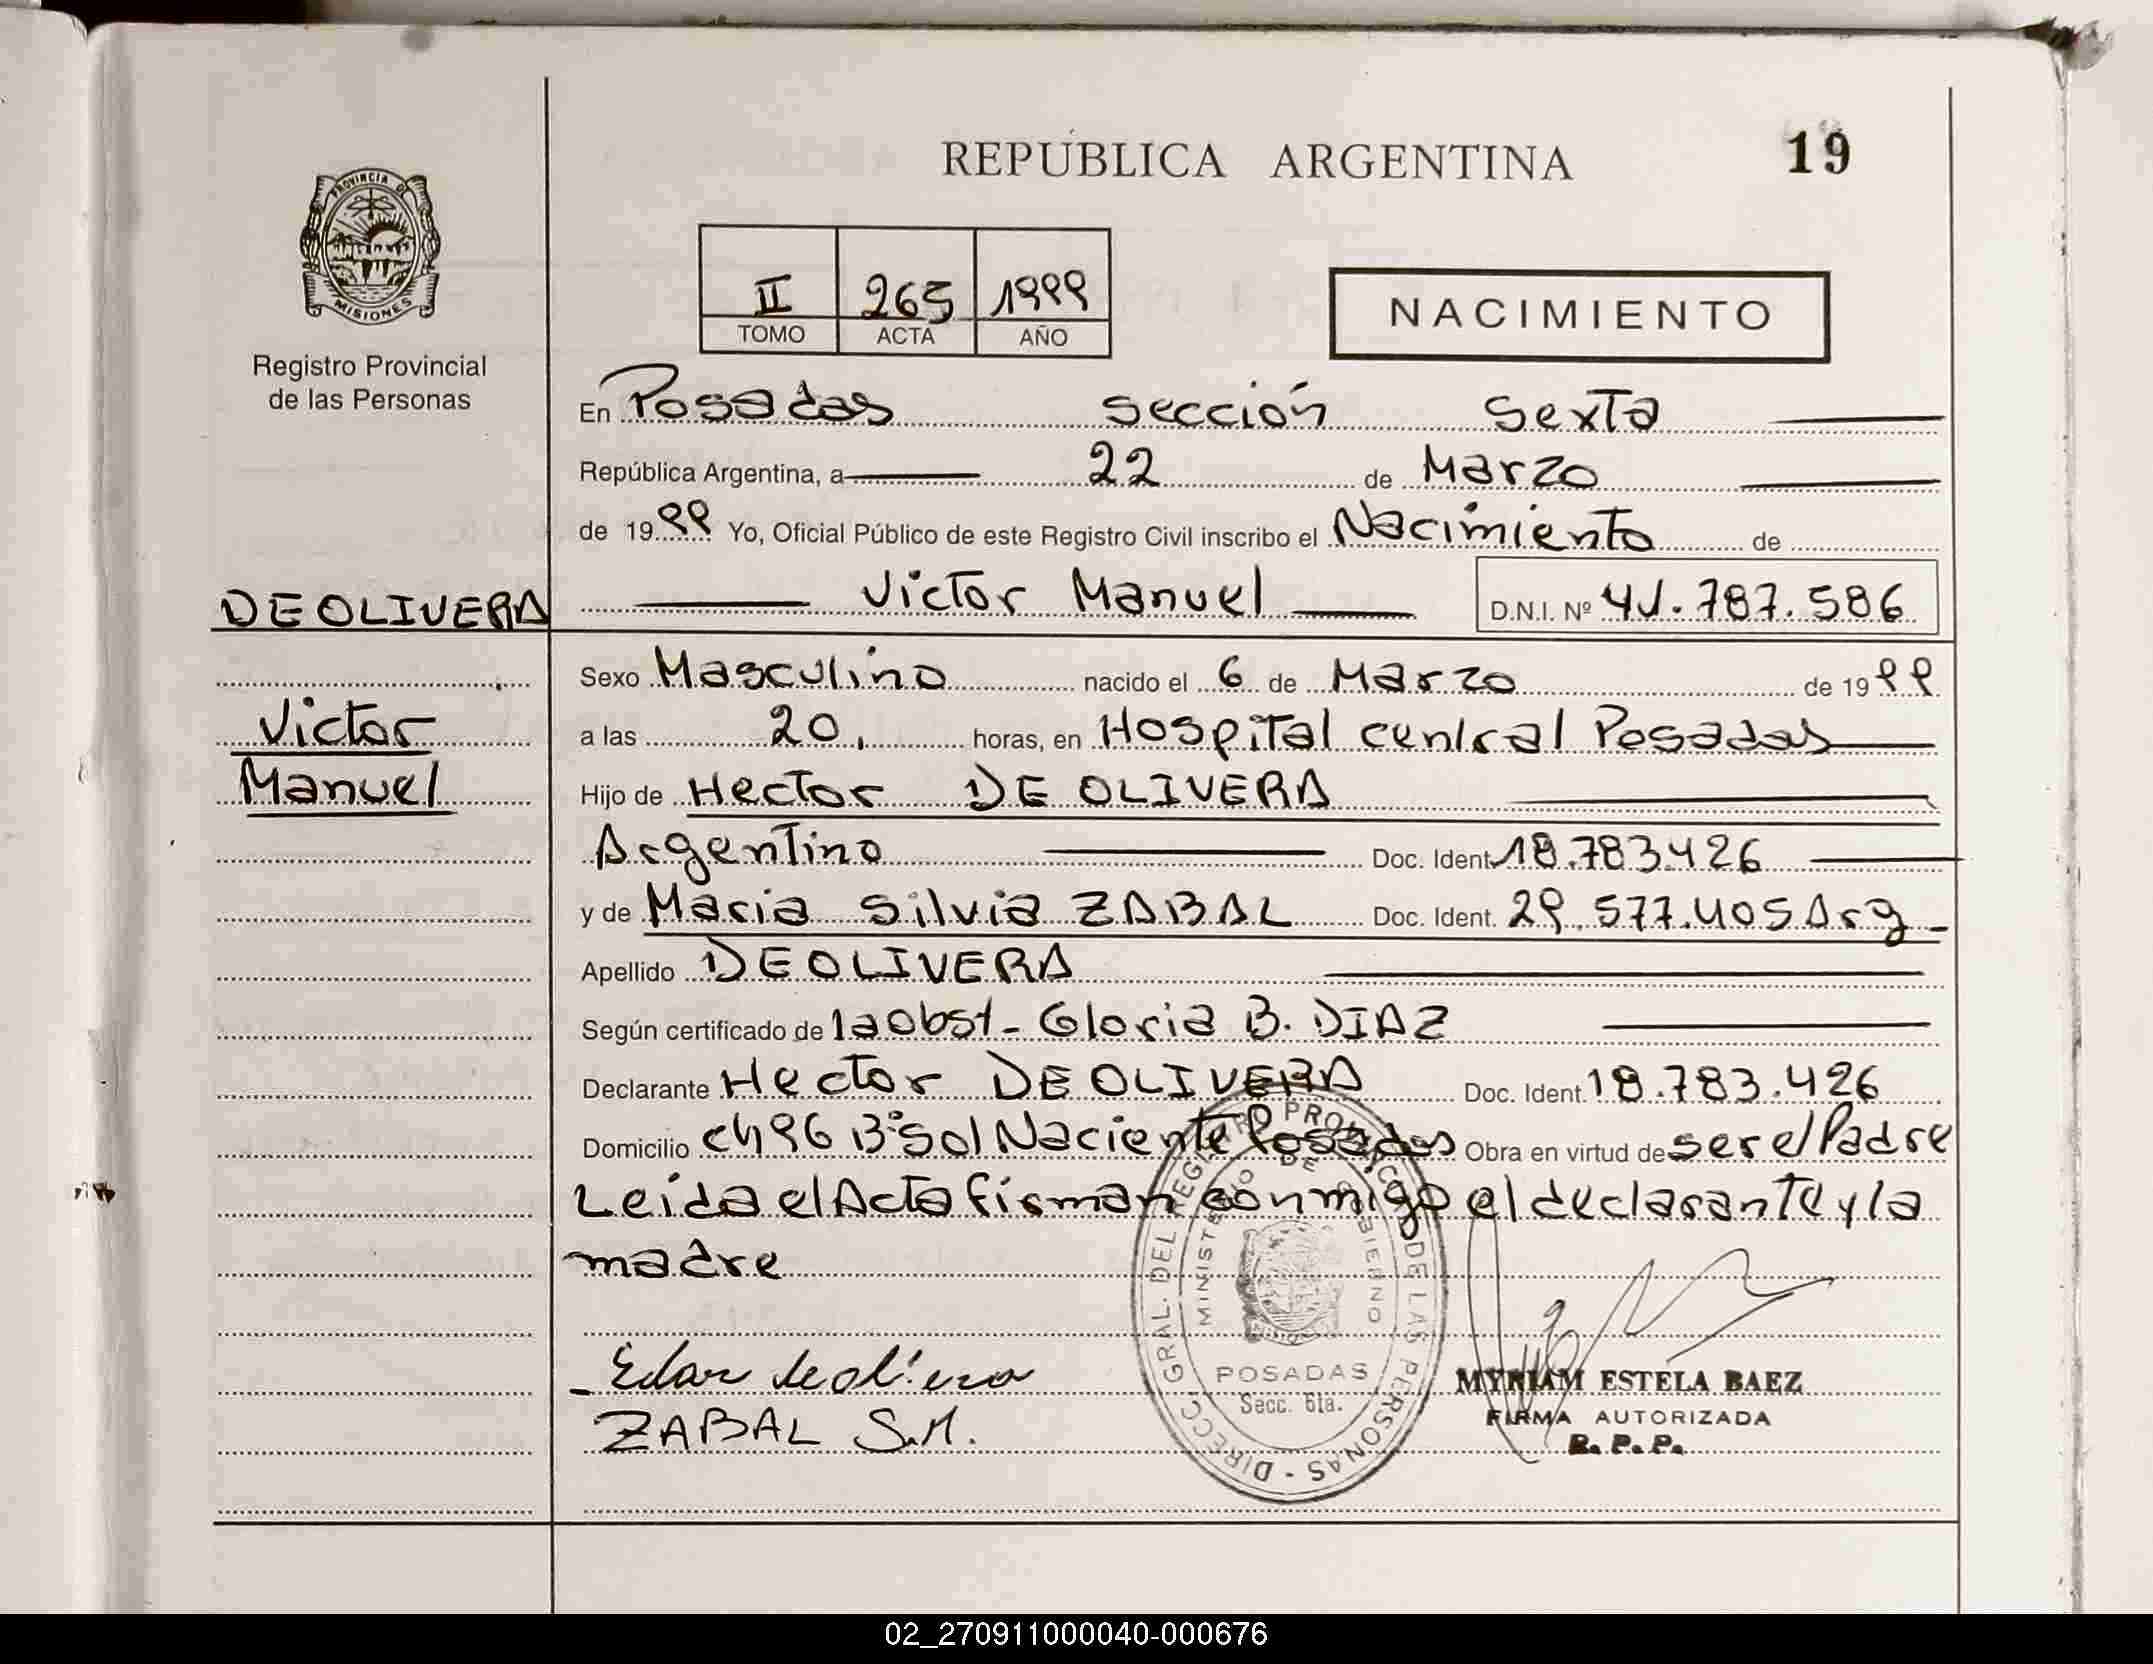 REPÚBLICA ARGENTINA
19
PROVINCIA DE
MISIONES
Registro Provincial
de las Personas
II 265 1999
TOMO ACTA AÑO
NACIMIENTO
En Posadas sección sexta
República Argentina, a 22 de Marzo
de 1999 Yo, Oficial Público de este Registro Civil inscribo el Nacimiento de
DE OLIVERA
Victor Manuel D.N.I. Nº 41.787.586
Sexo Masculino nacido el 6 de Marzo de 1999
Victor
Manuel
a las 20, horas, en Hospital central Posadas
Hijo de Hector DE OLIVERA
Argentino Doc. Ident. 18.783.426
y de Maria Silvia ZABAL Doc. Ident. 29.577.405 Arg
Apellido DE OLIVERA
Según certificado de la Obst. Gloria B. DIAZ
Declarante Hector DE OLIVERA Doc. Ident. 18.783.426
Domicilio ch 96 Bº Sol Naciente Posadas Obra en virtud de ser el Padre
Leida el Acta firman conmigo el declarante y la
madre
ZABAL S.M.
DIRECC. GRAL. DEL REGISTRO PROVINCIAL DE LAS PERSONAS
MINISTERIO DE GOBIERNO
POSADAS
Secc. 6ta.
MYRIAM ESTELA BAEZ
FIRMA AUTORIZADA
R. P. P.
02_270911000040-000676